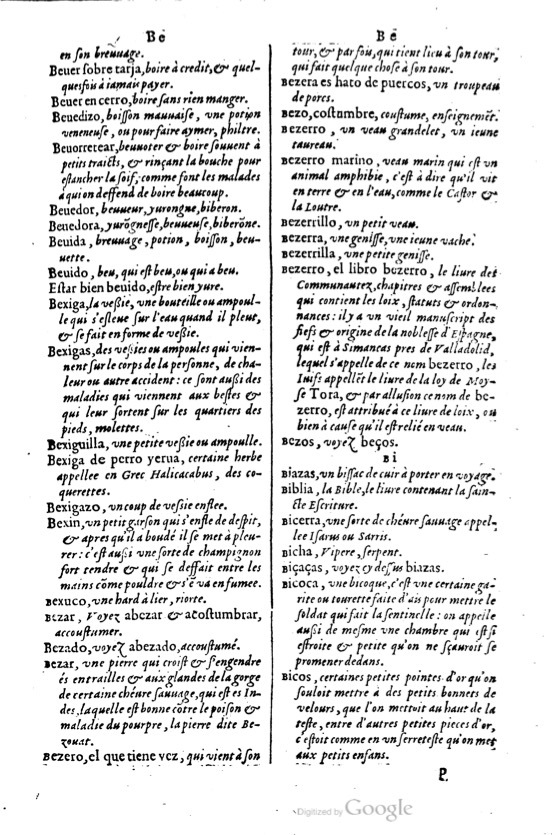 Be
en son breuuage.
Beuer sobre tarja, boire à credit, & quel-
quesfois à iamais payer.
Beuer en cerro, boire sans rien manger.
Beuedizo, boisson mauuaise, vne potion
veneneuse, ou pour faire aymer, philtre.
Beuorretear, beuuoter & boire souuent à
petits traicts, & rinçant la bouche pour
estancher la soif, comme font les malades
à qui on deffend de boire beaucoup.
Beuedor, beuueur, yurongne, biberon.
Beuedora, yurõgnesse, beuueuse, biberõne.
Beuida, breuuage, potion, boisson, beu-
uette.
Beuido, beu, qui est beu, ou qui a beu.
Estar bien beuido, estre bien yure.
Bexiga, la veßie, vne bouteille ou ampoul-
le qui s'esleue sur l'eau quand il pleut,
& se fait en forme de veßie.
Bexigas, des veßies ou ampoules qui vien-
nent sur le corps de la personne, de cha-
leur ou autre accident: ce sont außi des
maladies qui viennent aux bestes &
qui leur sortent sur les quartiers des
pieds, molettes.
Bexiguilla, vne petite veßie ou ampoulle.
Bexiga de perro yerua, certaine herbe
appellee en Grec Halicacabus, des co-
querettes.
Bexigazo, vn coup de vessie enflee.
Bexin, vn petit garson qui s'enfle de despit,
& apres qu'il a boudé il se met à pleu-
rer: c'est außi vne sorte de champignon
fort tendre & qui se deffait entre les
mains cõme pouldre & s'ẽ va en fumee.
Bexuco, vne hard à lier, riorte.
Bezar, Voyez abezar & acostumbrar,
accoustumer.
Bezado, voyez abezado, accoustumé.
Bezar, vne pierre qui croist & s'engendre
és entrailles & aux glandes de la gorge
de certaine chéure sauuage, qui est és In-
des, laquelle est bonne cõtre le poison &
maladie du pourpre, la pierre dite Be-
zouat.
Bezero, el que tiene vez, qui vient à son
Be
tour, & par fois, qui tient lieu à son tour,
qui fait quelque chose à son tour.
Bezera es hato de puercos, vn troupeau
de porcs.
Bezo, costumbre, coustume, enseignemẽt.
Bezerro, vn veau grandelet, vn ieune
taureau.
Bezerro marino, veau marin qui est vn
animal amphibie, c'est à dire qu'il vit
en terre & en l'eau, comme le Castor &
la Loutre.
Bezerrillo, vn petit veau.
Bezerra, vne genisse, vne ieune vache.
Bezerrilla, vne petite genisse.
Bezerro, el libro bezerro, le liure des
Communautez, chapitres & assemblees
qui contient les loix, statuts & ordon-
nances: il y a vn vieil manuscript des
fiefs & origine de la noblesse d'Espagne,
qui est à Simancas pres de Valladolid,
lequel s'appelle de ce nom bezerro, les
Iuifs appellẽt le liure de la loy de Moy-
se Tora, & par allusion ce nom de be-
zerro, est attribué à ce liure de loix, ou
bien à cause qu'il est relié en veau.
Bezos, voyez beços.
Bi
Biazas, vn bissac de cuir à porter en voyage.
Biblia, la Bible, le liure contenant la sain-
cte Escriture.
Bicerra, vne sorte de chéure sauuage appel-
lee Isarus ou Sarris.
Bicha, Vipere, serpent.
Biçaças, voyez cy dessus biazas.
Bicoca, vne bicoque, c'est vne certaine ga-
rite ou tourette faite d'ais pour mettre le
soldat qui fait la sentinelle: on appelle
außi de mesme vne chambre qui est si
estroite & petite qu'on ne sçauroit se
promener dedans.
Bicos, certaines petites pointes d'or qu'on
souloit mettre à des petits bonnets de
velours, que l'on mettoit au haut de la
teste, entre d'autres petites pieces d'or,
c'estoit comme en vn serreteste qu'on met
aux petits enfans.
P.
Digitized by Google